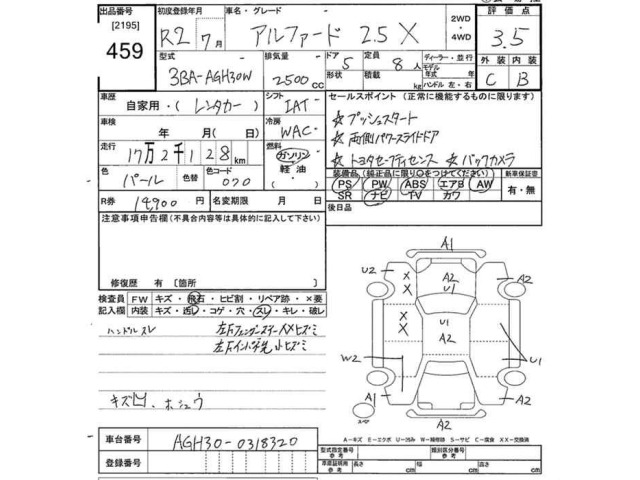 出品番号 初度登録年月 車名・グレード 2WD ・ 4WD 評価点
[2195]
459 R2 7月 アルファード 2.5 X 3.5
型式 排気量 ドア 定員 ディーラー・並行
3BA-AGH30W 2500 CC 5 8人 モデル年式 年
形状 積載 kg ハンドル 左・右
外装 内装
C B
車歴 自家用・(レンタカー) シフト IAT
セールスポイント(正常に機能するものに限ります)
☆プッシュスタート
車検 年 月( 日) 冷房 WAC
☆両側パワースライドドア
走行 17万2千128km 燃料 ガソリン・軽油・
☆トヨタセーフティセンス ☆バックカメラ
色 パール 色替 色コード 070
装備品(純正品に限り○をつけてください) 新車保証書
PS PW ABS エアB AW 有・無
SR ナビ TV カワ
R券 14,900 名変期限 月 日 後日品
注意事項申告欄(不具合内容等は具体的に記入して下さい)
修復歴 有〔箇所
検査員記入欄 FW キズ・飛石・ヒビ割・リペア跡・×要
内装 キズ・汚レ・コゲ・穴・スレ・キレ・破レ
ハンドルスレ
キズ凹、ホシュウ
A1
U2 X A2 U1 A2
X U1
A2
W2 U1
A1 A2 A2
A2
A-キズ E-エクボ U-凹み W-補修跡 S-サビ C-腐食 XX-交換済
車台番号 AGH30-0318320
登録番号
型式指定番号 参考 類別区分番号 参考
車庫証明用 参考 長さ cm 幅 cm 高さ cm